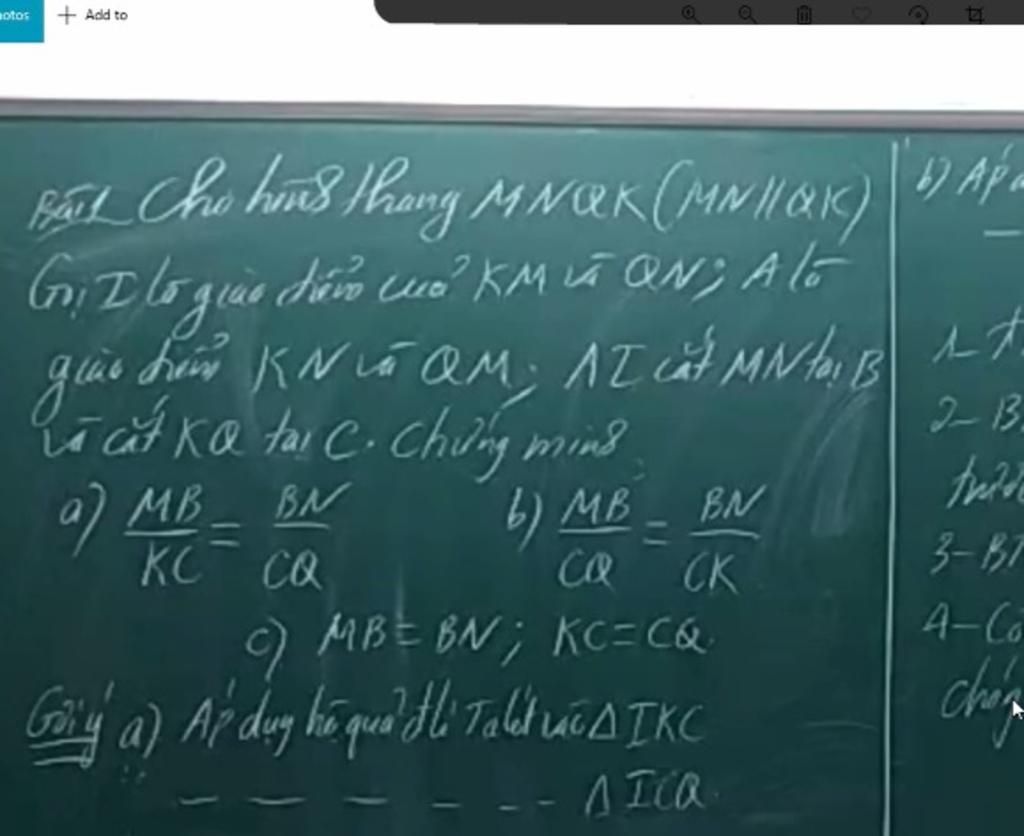 Add to
Bài 1 Cho hình thang MNQK (MN//QK)
Gọi I là giao điểm của KM và QN; A là
giao điểm KN và QM; AI cắt MN tại B
và cắt KQ tại C. Chứng minh
a) MB/KC = BN/CQ b) MB/CQ = BN/CK
c) MB = BN; KC = CQ.
Gợi ý a) Áp dụng hệ quả đl Talet vào Δ IKC
— — — — — - Δ ICQ.
b) Áp
1-
2- B
3- BT
4- Cô